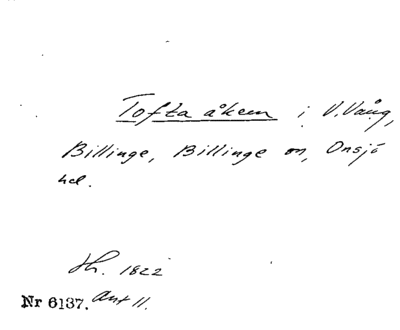 Tofta åkern i V. Vång,
Billinge, Billinge sn, Onsjö
hd.
Sh. 1822
Nr 6137. Ant 11.